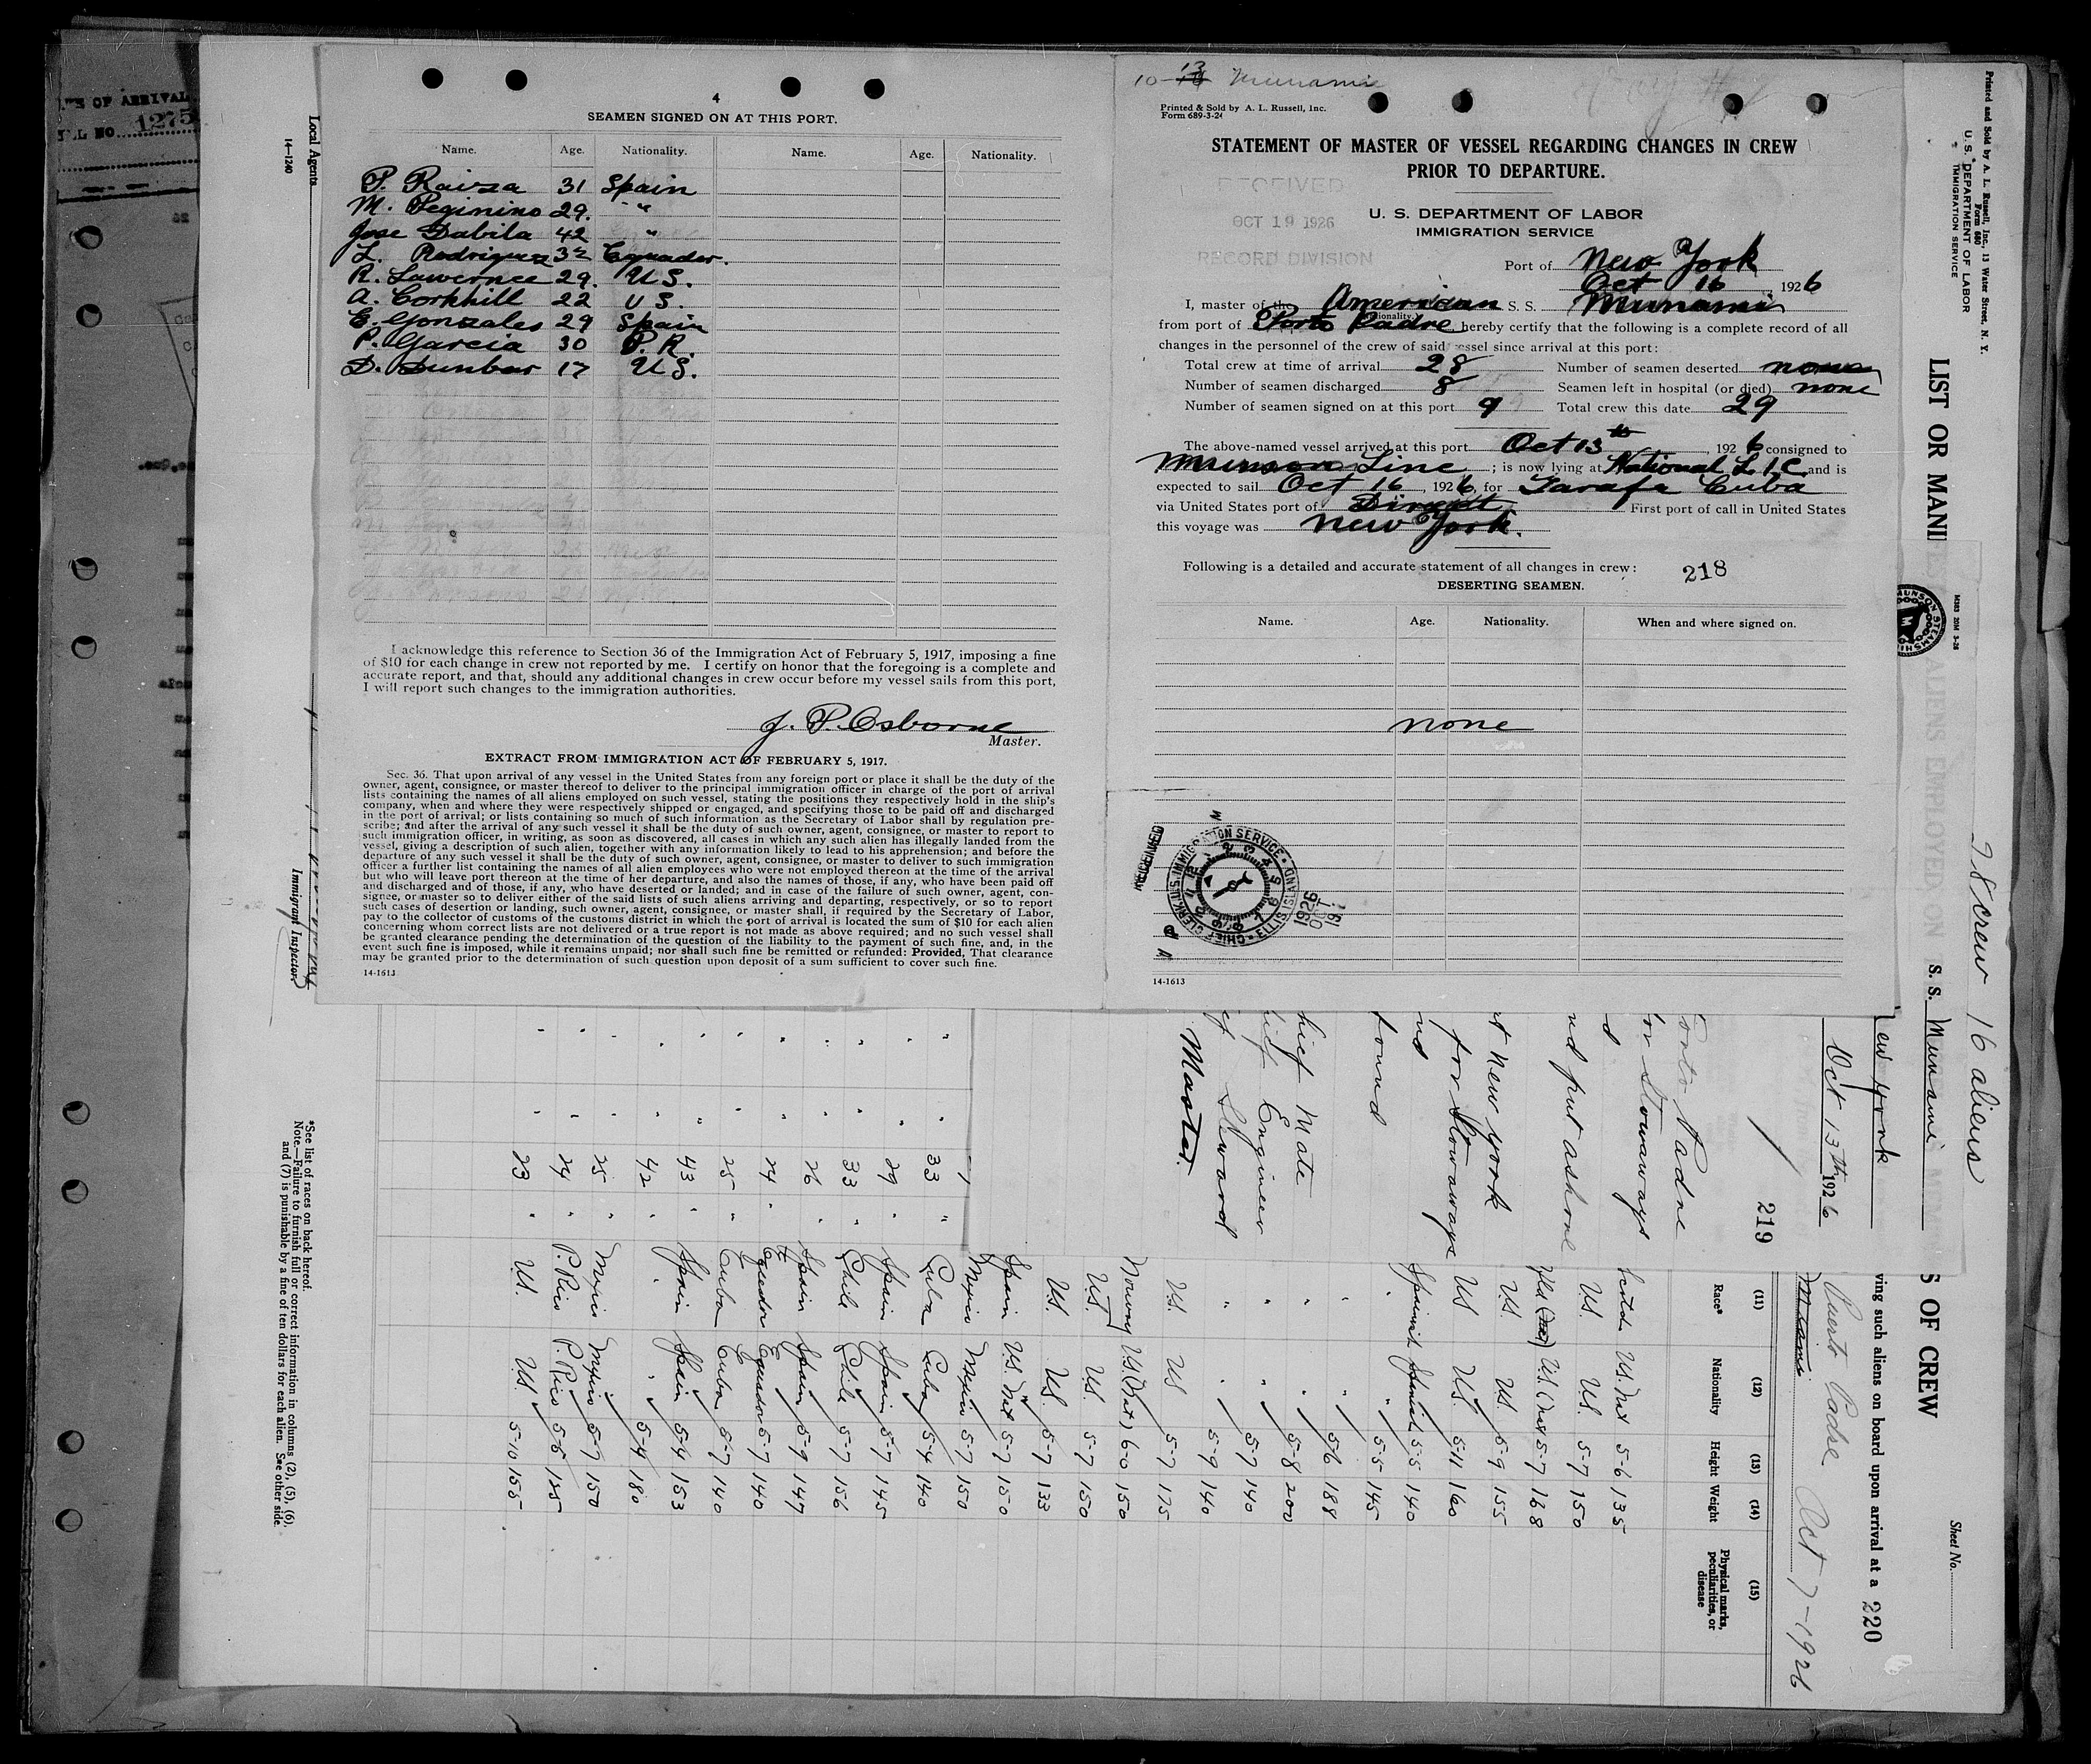 4
SEAMEN SIGNED ON AT THIS PORT.
Name. Age. Nationality. Name. Age. Nationality.
P. Raiza 31 Spain
M. Peginino 29. " "
Jose Dabila 42 "
L. Rodriguez 32 Equador.
R. Lawernce 29. U.S.
A. Corkhill 22 U S.
E. Gonzales 29 Spain
P. Garcia 30 P.R.
D. Dunbar 17 U.S.
I acknowledge this reference to Section 36 of the Immigration Act of February 5, 1917, imposing a fine
of $10 for each change in crew not reported by me. I certify on honor that the foregoing is a complete and
accurate report, and that, should any additional changes in crew occur before my vessel sails from this port,
I will report such changes to the immigration authorities.
J. P. Osborne
Master.
EXTRACT FROM IMMIGRATION ACT OF FEBRUARY 5, 1917.
Sec. 36. That upon arrival of any vessel in the United States from any foreign port or place it shall be the duty of the
owner, agent, consignee, or master thereof to deliver to the principal immigration officer in charge of the port of arrival
lists containing the names of all aliens employed on such vessel, stating the positions they respectively hold in the ship's
company, when and where they were respectively shipped or engaged, and specifying those to be paid off and discharged
in the port of arrival; or lists containing so much of such information as the Secretary of Labor shall by regulation pre-
scribe; and after the arrival of any such vessel it shall be the duty of such owner, agent, consignee, or master to report to
such immigration officer, in writing, as soon as discovered, all cases in which any such alien has illegally landed from the
vessel, giving a description of such alien, together with any information likely to lead to his apprehension; and before the
departure of any such vessel it shall be the duty of such owner, agent, consignee, or master to deliver to such immigration
officer a further list containing the names of all alien employees who were not employed thereon at the time of the arrival
but who will leave port thereon at the time of her departure, and also the names of those, if any, who have been paid off
and discharged and of those, if any, who have deserted or landed; and in case of the failure of such owner, agent, con-
signee, or master so to deliver either of the said lists of such aliens arriving and departing, respectively, or so to report
such cases of desertion or landing, such owner, agent, consignee, or master shall, if required by the Secretary of Labor,
pay to the collector of customs of the customs district in which the port of arrival is located the sum of $10 for each alien
concerning whom correct lists are not delivered or a true report is not made as above required; and no such vessel shall
be granted clearance pending the determination of the question of the liability to the payment of such fine, and, in the
event such fine is imposed, while it remains unpaid; nor shall such fine be remitted or refunded: Provided, That clearance
may be granted prior to the determination of such question upon deposit of a sum sufficient to cover such fine.
14-1613
10-13 Munami
Printed & Sold by A. L. Russell, Inc.
Form 689-3-24
STATEMENT OF MASTER OF VESSEL REGARDING CHANGES IN CREW
PRIOR TO DEPARTURE.
RECEIVED
OCT 19 1926
RECORD DIVISION
U. S. DEPARTMENT OF LABOR
IMMIGRATION SERVICE
Port of New York
Oct 16, 1926
I, master of the American S. S. Munami
from port of Porto Padre hereby certify that the following is a complete record of all
changes in the personnel of the crew of said vessel since arrival at this port:
Total crew at time of arrival 28 Number of seamen deserted none
Number of seamen discharged 8 Seamen left in hospital (or died) none
Number of seamen signed on at this port 9 Total crew this date 29
The above-named vessel arrived at this port Oct 13th, 1926 consigned to
Munson Line; is now lying at National L I C and is
expected to sail Oct 16, 1926, for Tarafa Cuba
via United States port of Direct. First port of call in United States
this voyage was New York.
Following is a detailed and accurate statement of all changes in crew: 218
DESERTING SEAMEN.
Name. Age. Nationality. When and where signed on.
none
RECEIVED
CHIEF CLERK, U.S. IMMIGRATION SERVICE ELLIS ISLAND
1926
OCT.
19
14-1613
OF ARRIVAL
NO. 1275
Local Agents
14-1240
Immigrant Inspector
*See list of races on back hereof.
Note.—Failure to furnish full or correct information in columns (2), (5), (6),
and (7) is punishable by a fine of ten dollars for each alien. See other side.
Printed and Sold by A. L. Russell, Inc., 13 Water Street, N. Y.
Form 680
U. S. DEPARTMENT OF LABOR
IMMIGRATION SERVICE
28 crew 16 aliens
Sheet No.
LIST OR MANI
S. S. Munami
S OF CREW
ving such aliens on board upon arrival at a 220
ew York
Oct 13th 1926
219
Puerto Padre Oct 7-1926
Porto Padre
for Stowaways
nd put ashore
t New York
for Stowaways
nd
found
hief Mate
hief Engineer
Steward
Master.
(11) Race* (12) Nationality (13) Height (14) Weight (15) Physical marks, peculiarities, or disease
U.S. Nat 5-6 135
U.S. U.S. 5-7 150
U.S. (Nat) 5-7 168
U.S. U.S. 5-9 155
US U.S. 5-11 160
Spanish Spanish 5-5 140
" " 5-5 145
" " 5-6 188
" " 5-8 200
" " 5-7 140
" " 5-9 140
U.S. US 5-7 175
Norway US (Nat) 6-0 150
U.S. U.S. 5-7 150
U.S. U.S. 5-7 133
Spain U.S. Nat 5-7 150
Mexico Mexico 5-7 150
33 " Cuba Cuba 5-4 140
29 " Spain Spain 5-7 145
33 " Chile Chile 5-7 156
26 " Spain Spain 5-9 147
24 " Equador Equador 5-7 140
25 " Cuba Cuba 5-7 140
43 " Spain Spain 5-4 153
42 " " " 5-4 180
25 " Mexico Mexico 5-7 150
24 " P. Rico P. Rico 5-5
23 " U.S. U.S. 5-10 155